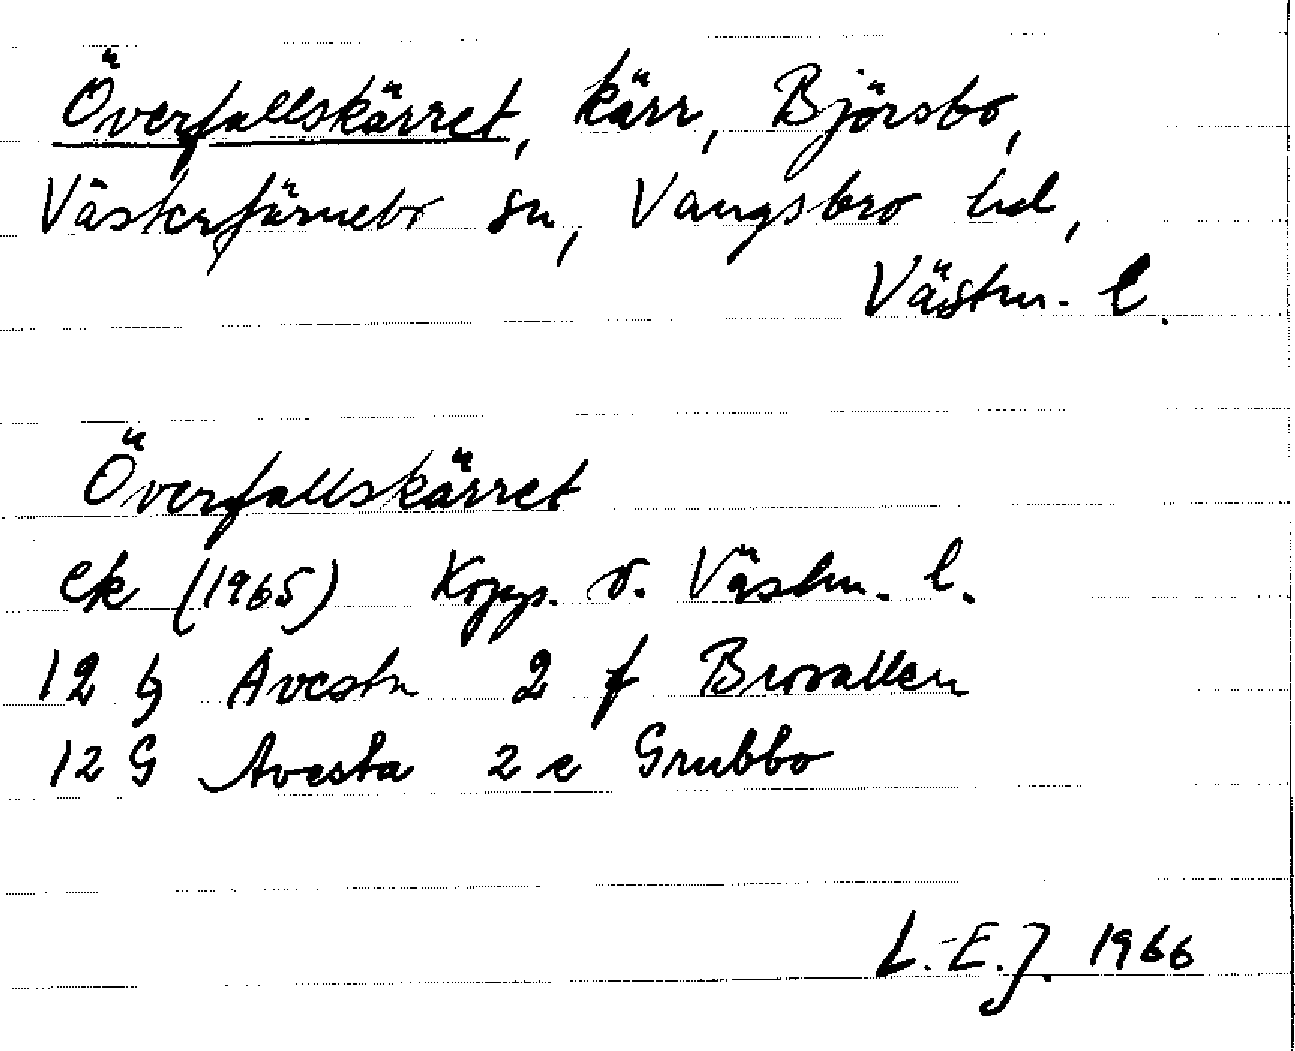 Överfallskärret, kärr, Björsbo,
Västerfärnebo sn, Vangsbro hd,
Västm. l.
Överfallskärret
ek (1965) Kopp. o. Västm. l.
12 G Avesta 2 f Brovallen
12 G Avesta 2 e Grubbo
L.-E.J. 1966